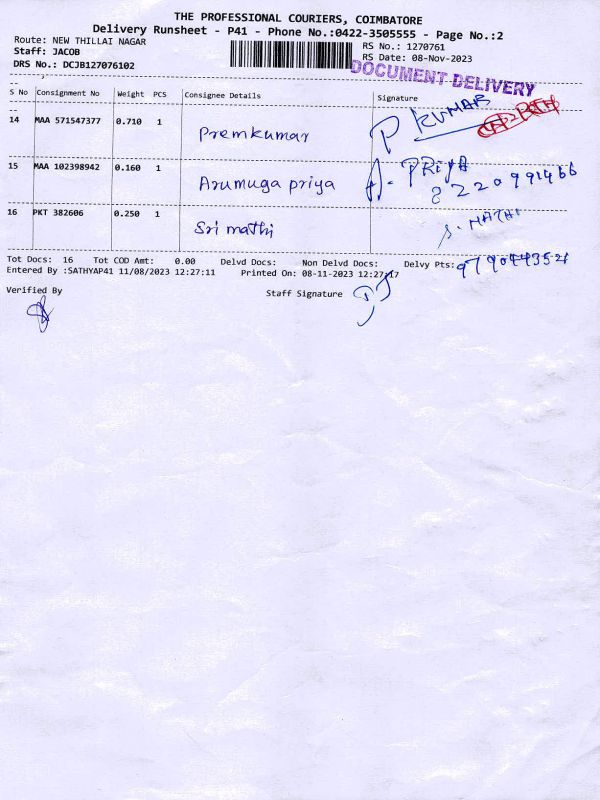 THE PROFESSIONAL COURIERS, COIMBATORE
Delivery Runsheet - P41 - Phone No.:0422-3505555 - Page No.:2
Route: NEW THILLAI NAGAR RS No.: 1270761
Staff: JACOB RS Date: 08-Nov-2023
DRS No.: DCJB127076102 DOCUMENT DELIVERY
S No Consignment No Weight PCS Consignee Details Signature
14 MAA 571547377 0.710 1 Premkumar P KUMAR
15 MAA 102398942 0.160 1 Arumuga priya A. PRiyA
8220991466
16 PKT 382606 0.250 1 Sri mathi S. MATHI
Tot Docs: 16 Tot COD Amt: 0.00 Delvd Docs: Non Delvd Docs: Delvy Pts:
Entered By :SATHYAP41 11/08/2023 12:27:11 Printed On: 08-11-2023 12:27:17
Verified By Staff Signature